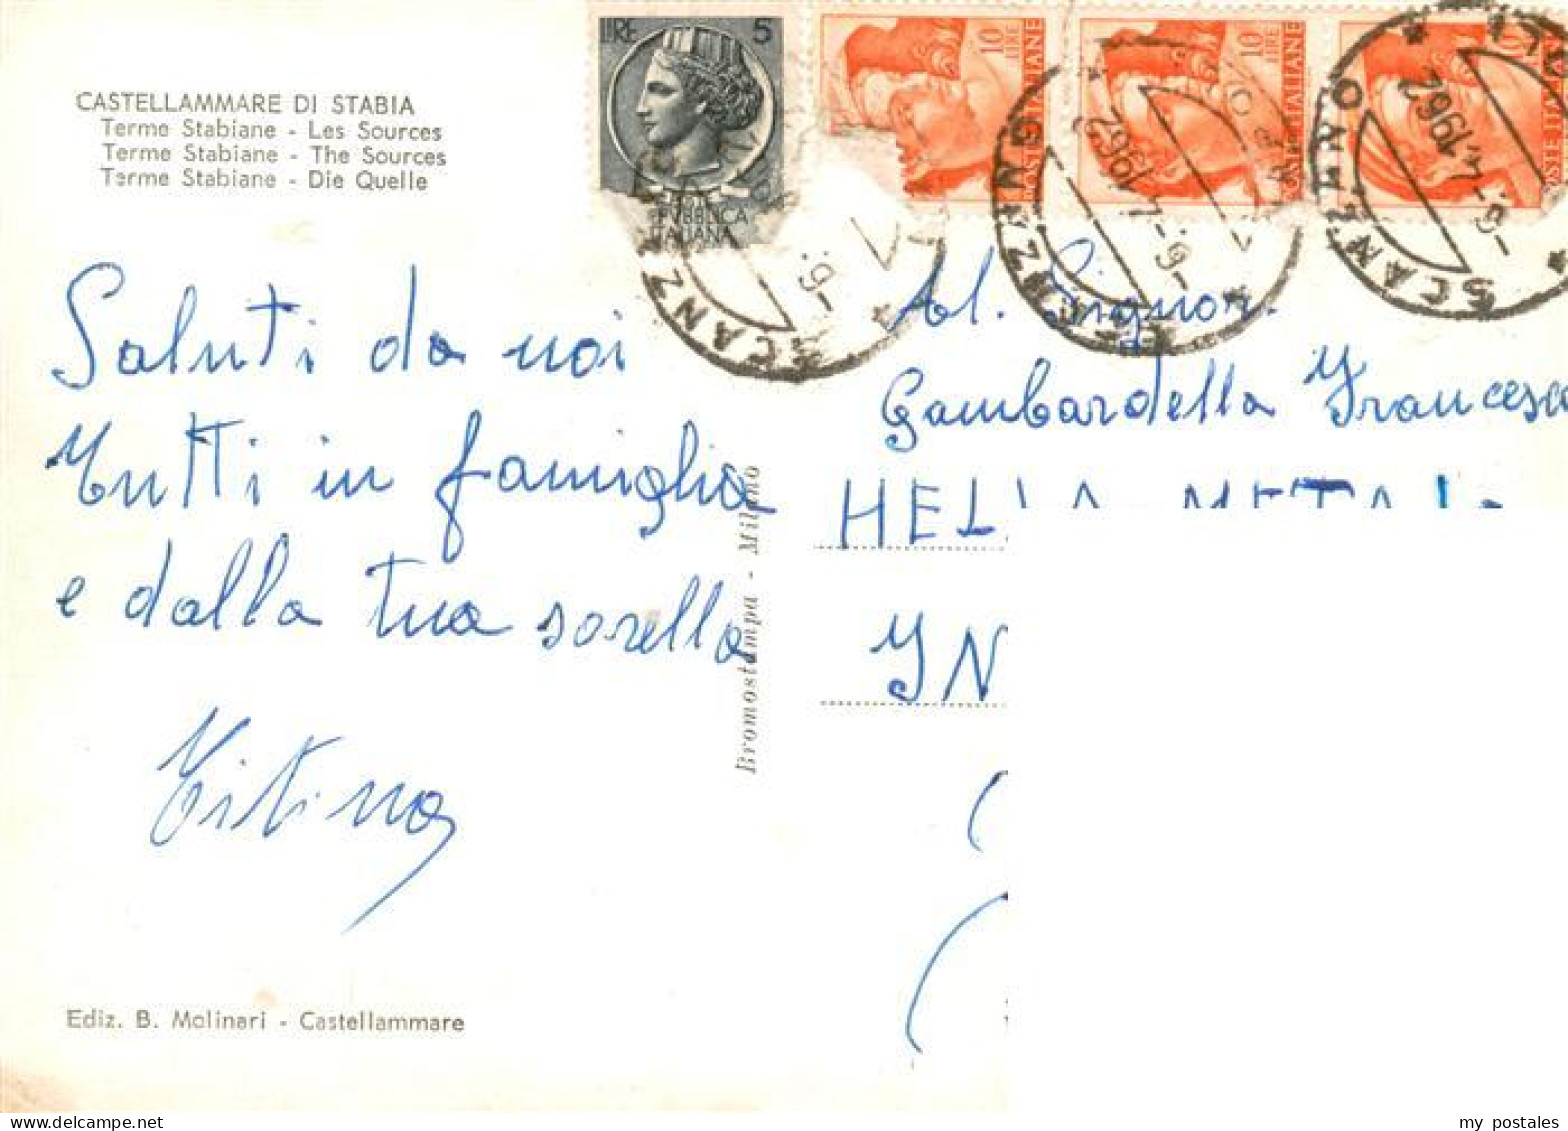 CASTELLAMMARE DI STABIA
Terme Stabiane - Les Sources
Terme Stabiane - The Sources
Terme Stabiane - Die Quelle
LIRE 5
REPUBBLICA
ITALIANA
10 LIRE
POSTE ITALIANE
10 LIRE
POSTE ITALIANE
10
POSTE ITALIANE
SCANZANO
6.-4.1962
SCANZANO
6.-4.1962
Saluti da noi
tutti in famiglia
e dalla tua sorella
Titina
Al. Signor.
Gambardella Francesco
HELLA
IN
Bromostampa - Milano
Ediz. B. Molinari - Castellammare
my postales